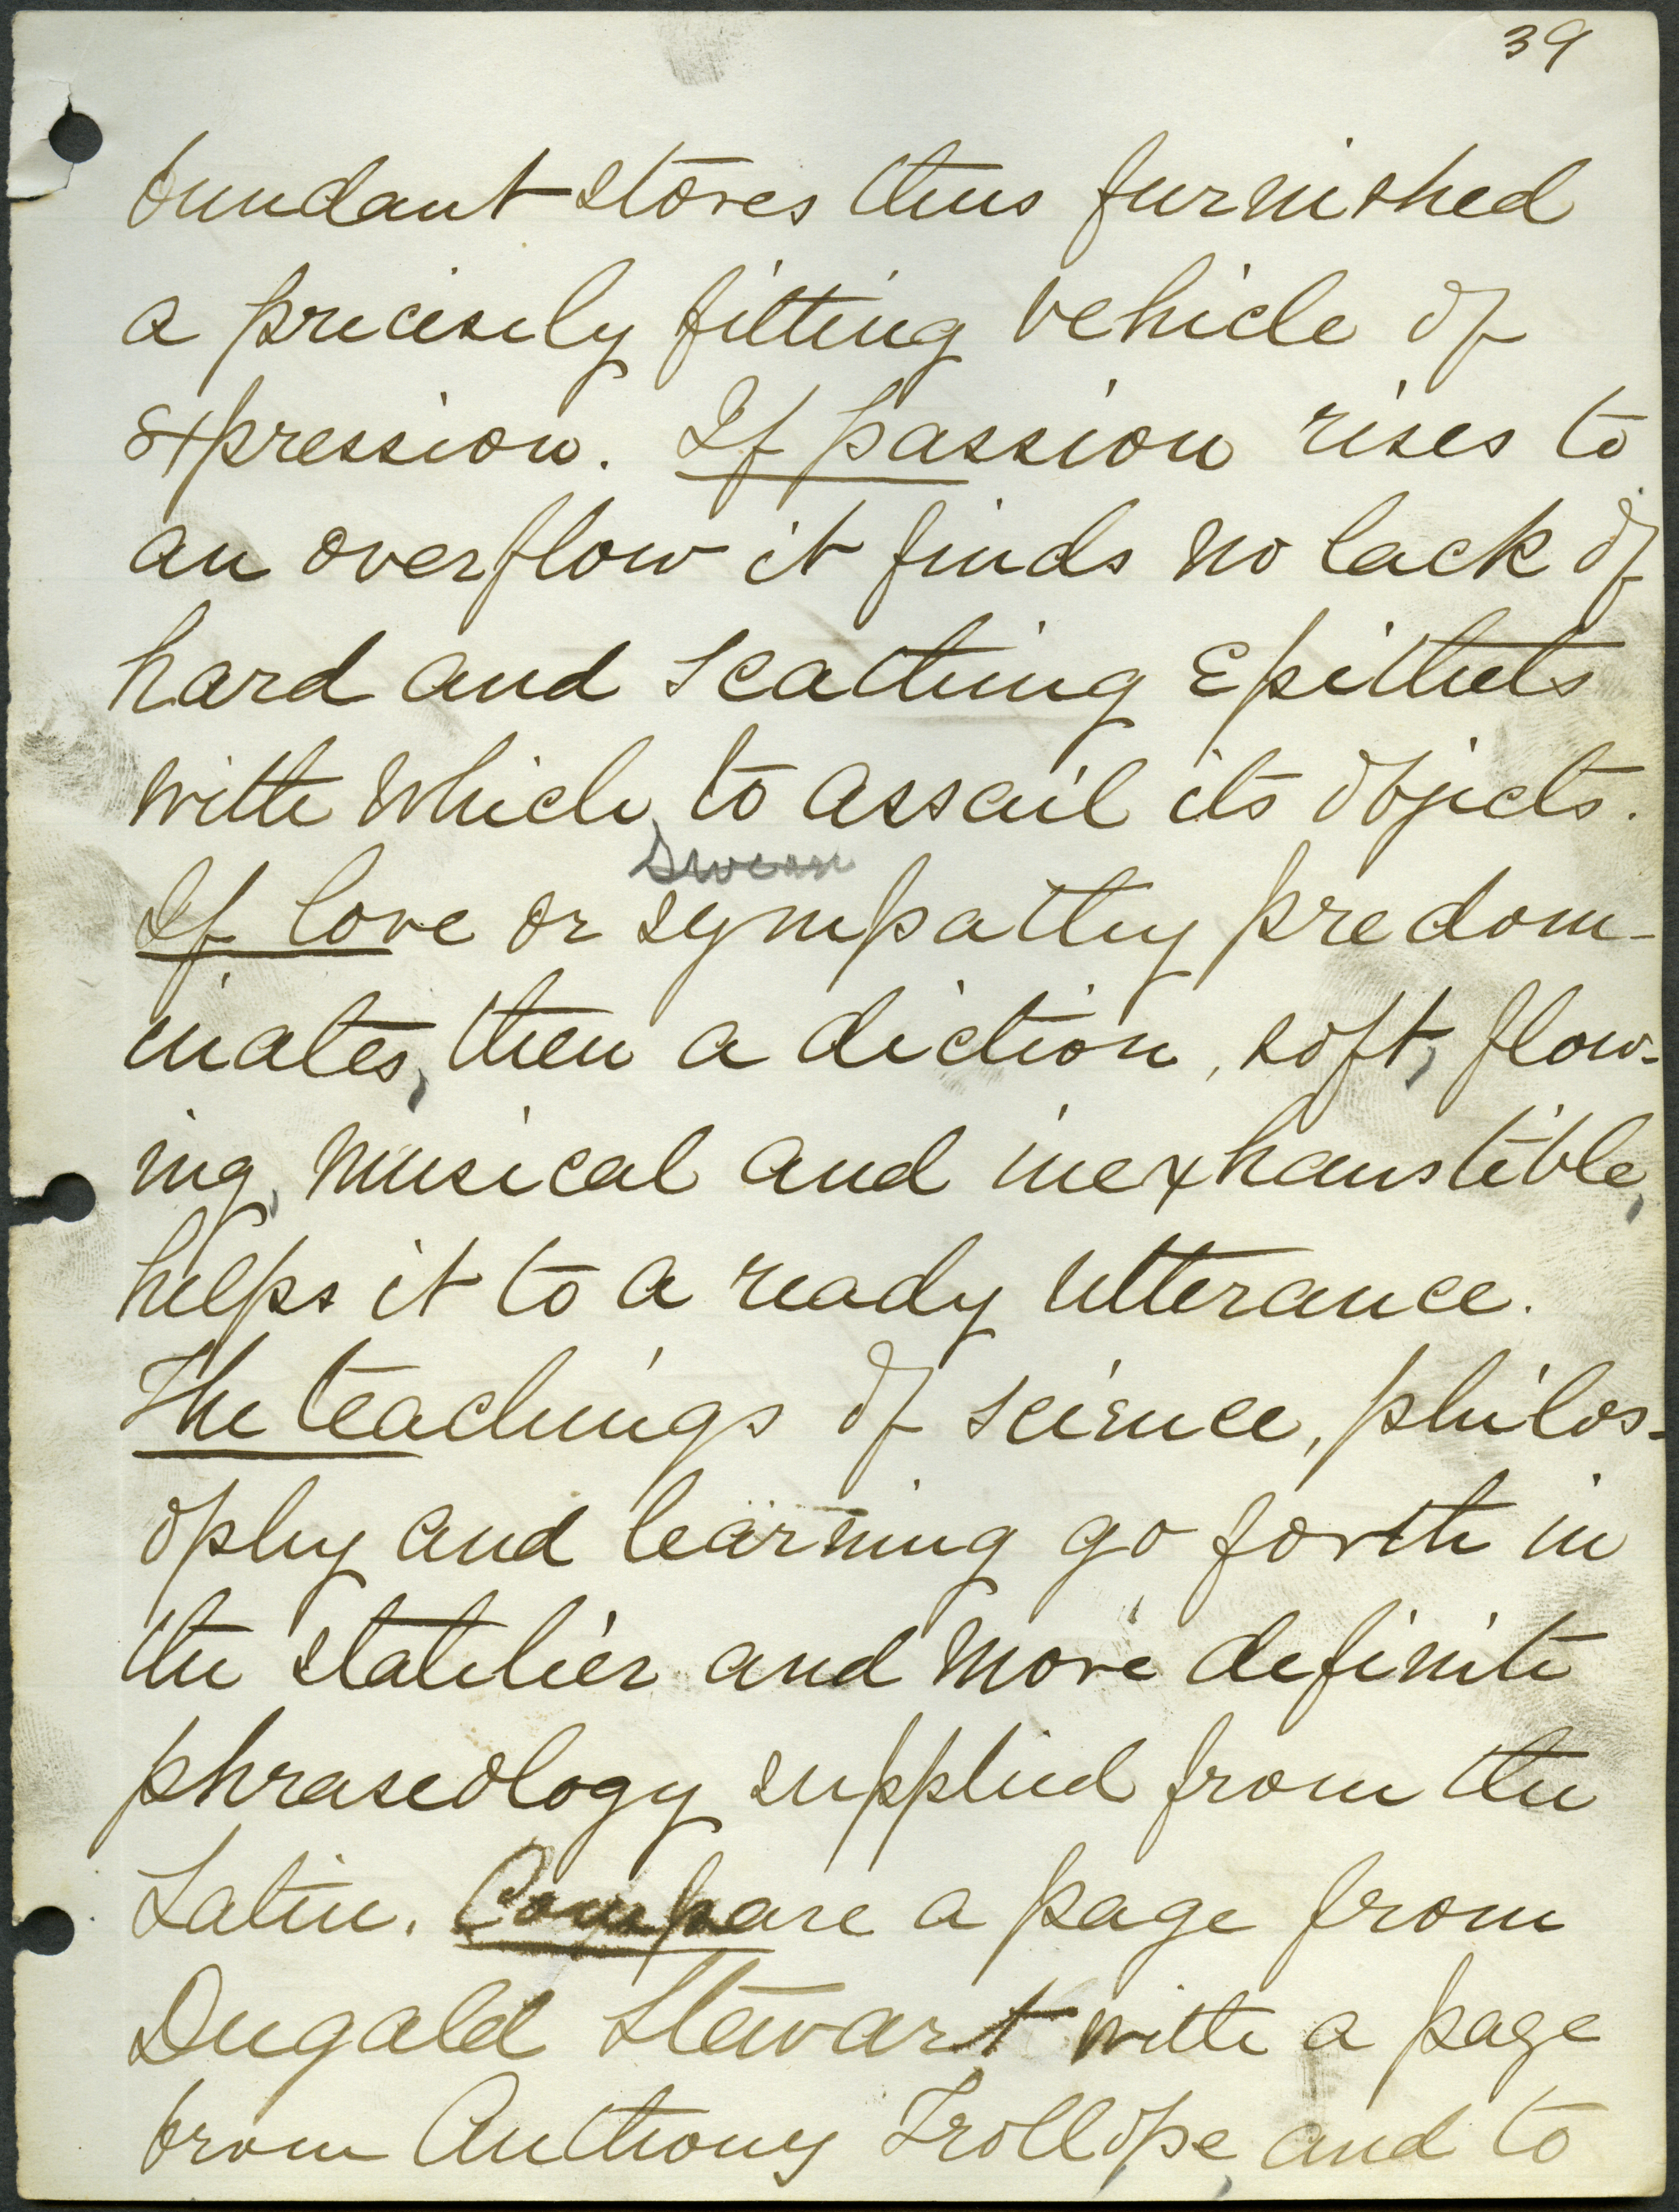 39
bundant stores thus furnished
a precisely fitting vehicle of
expression. If passion rises to
an overflow it finds no lack of
hard and scathing epithets
with which to assail its objects.
If love or sympathy predom-
inates, then a diction, soft, flow-
ing, musical and inexhaustible,
helps it to a ready utterance.
The teachings of science, philos-
ophy and learning go forth in
the statelier and more definite
phraseology supplied from the
Latin. Compare a page from
Dugald Stewart with a page
from Anthony Trollope, and to